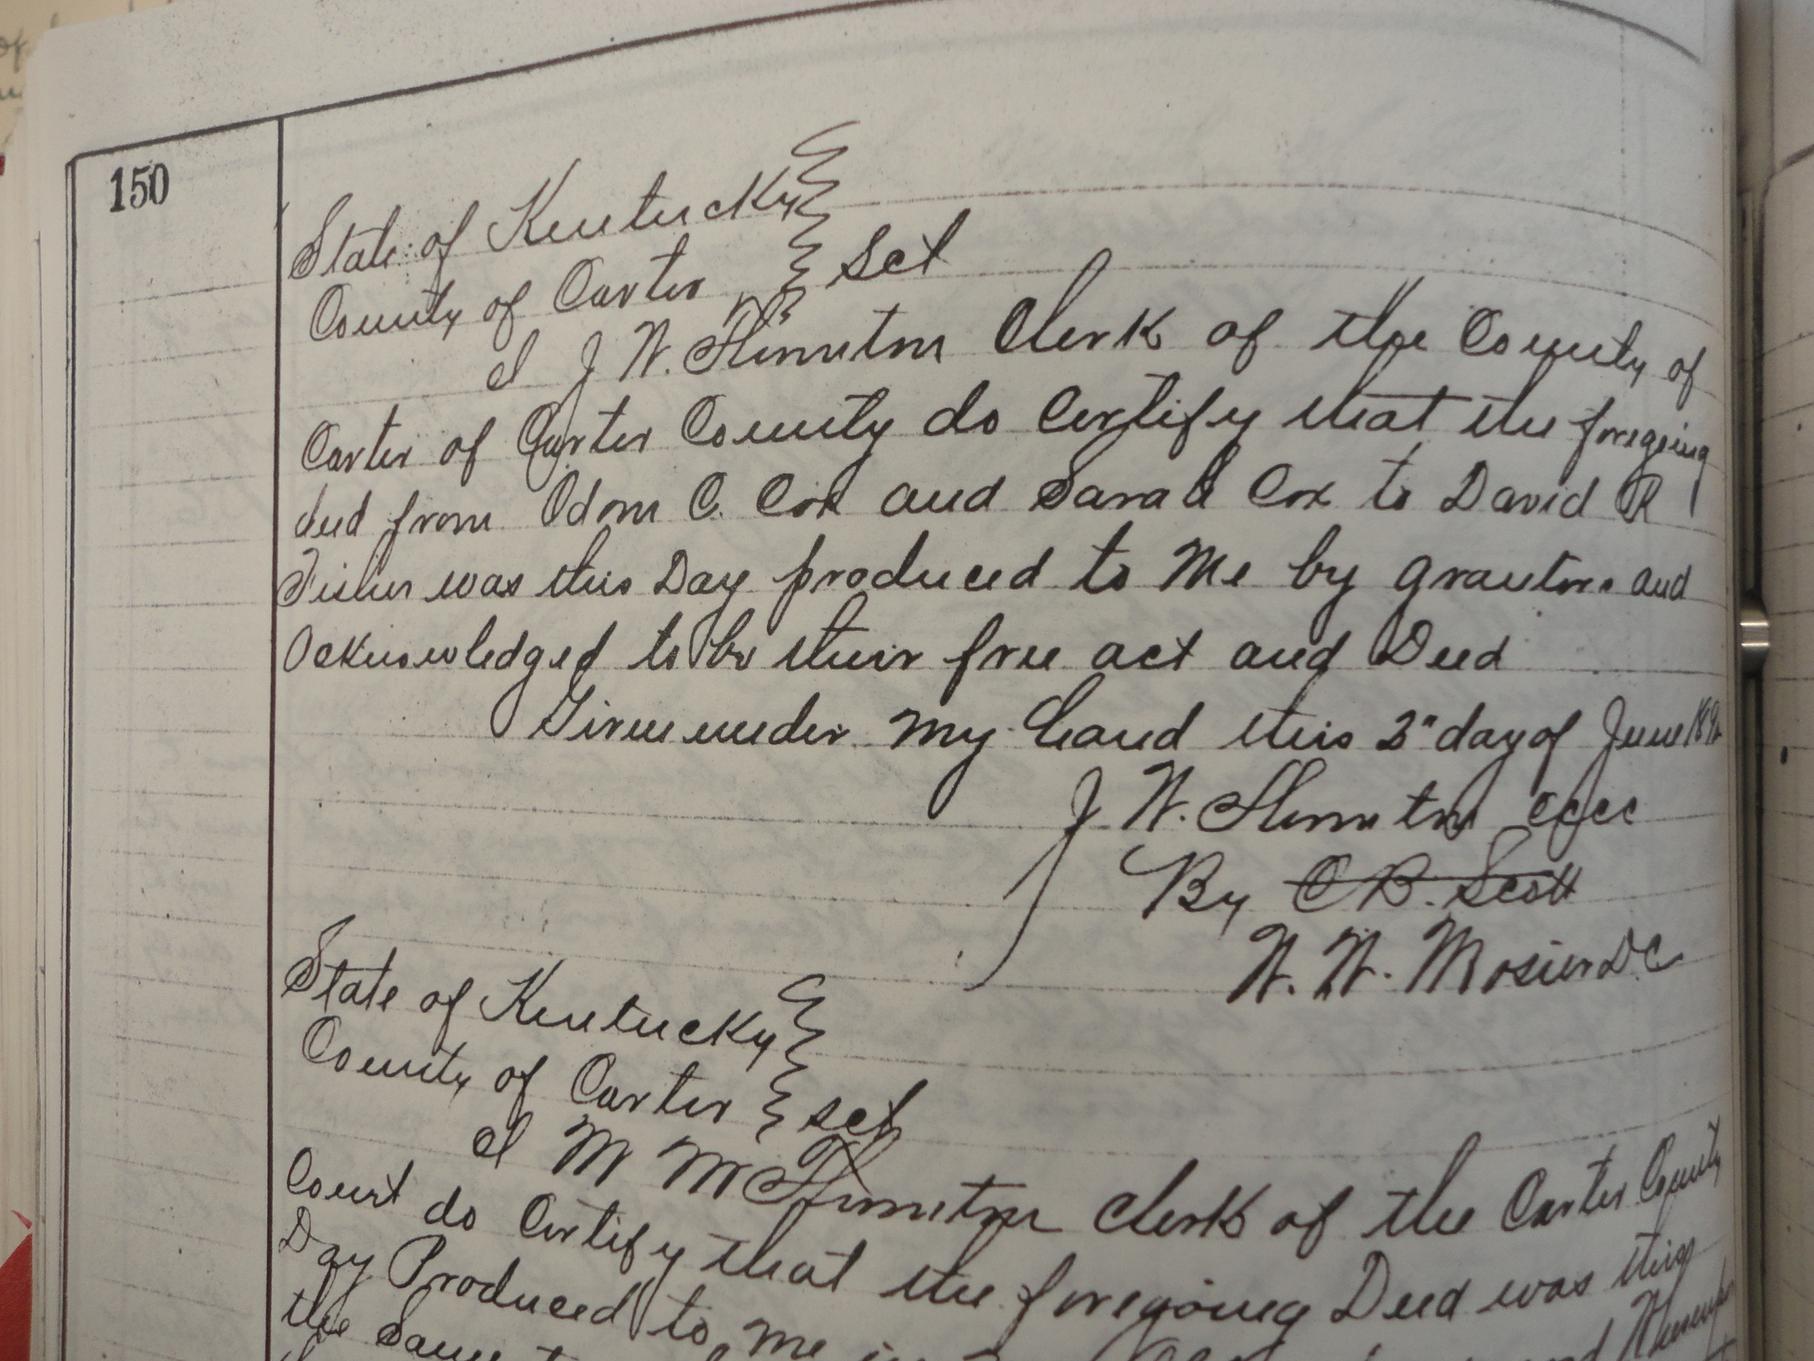 150
State of Kentucky
County of Carter } Sct
I J. W. Thornton Clerk of the County of
Carter of Carter County do Certify that the foregoing
deed from Odom C. Cox and Sarah Cox to David R
Fisher was this Day produced to Me by grantors and
acknowledged to be their free act and Deed
Given under my hand this 3" day of June 189
J W. Thornton CCCC
By C B. Scott
W. W. Mosier DC
State of Kentucky
County of Carter } sct
I M M Thornton Clerk of the Carter County
Court do Certify that the foregoing Deed was this
Day Produced to me
the Same